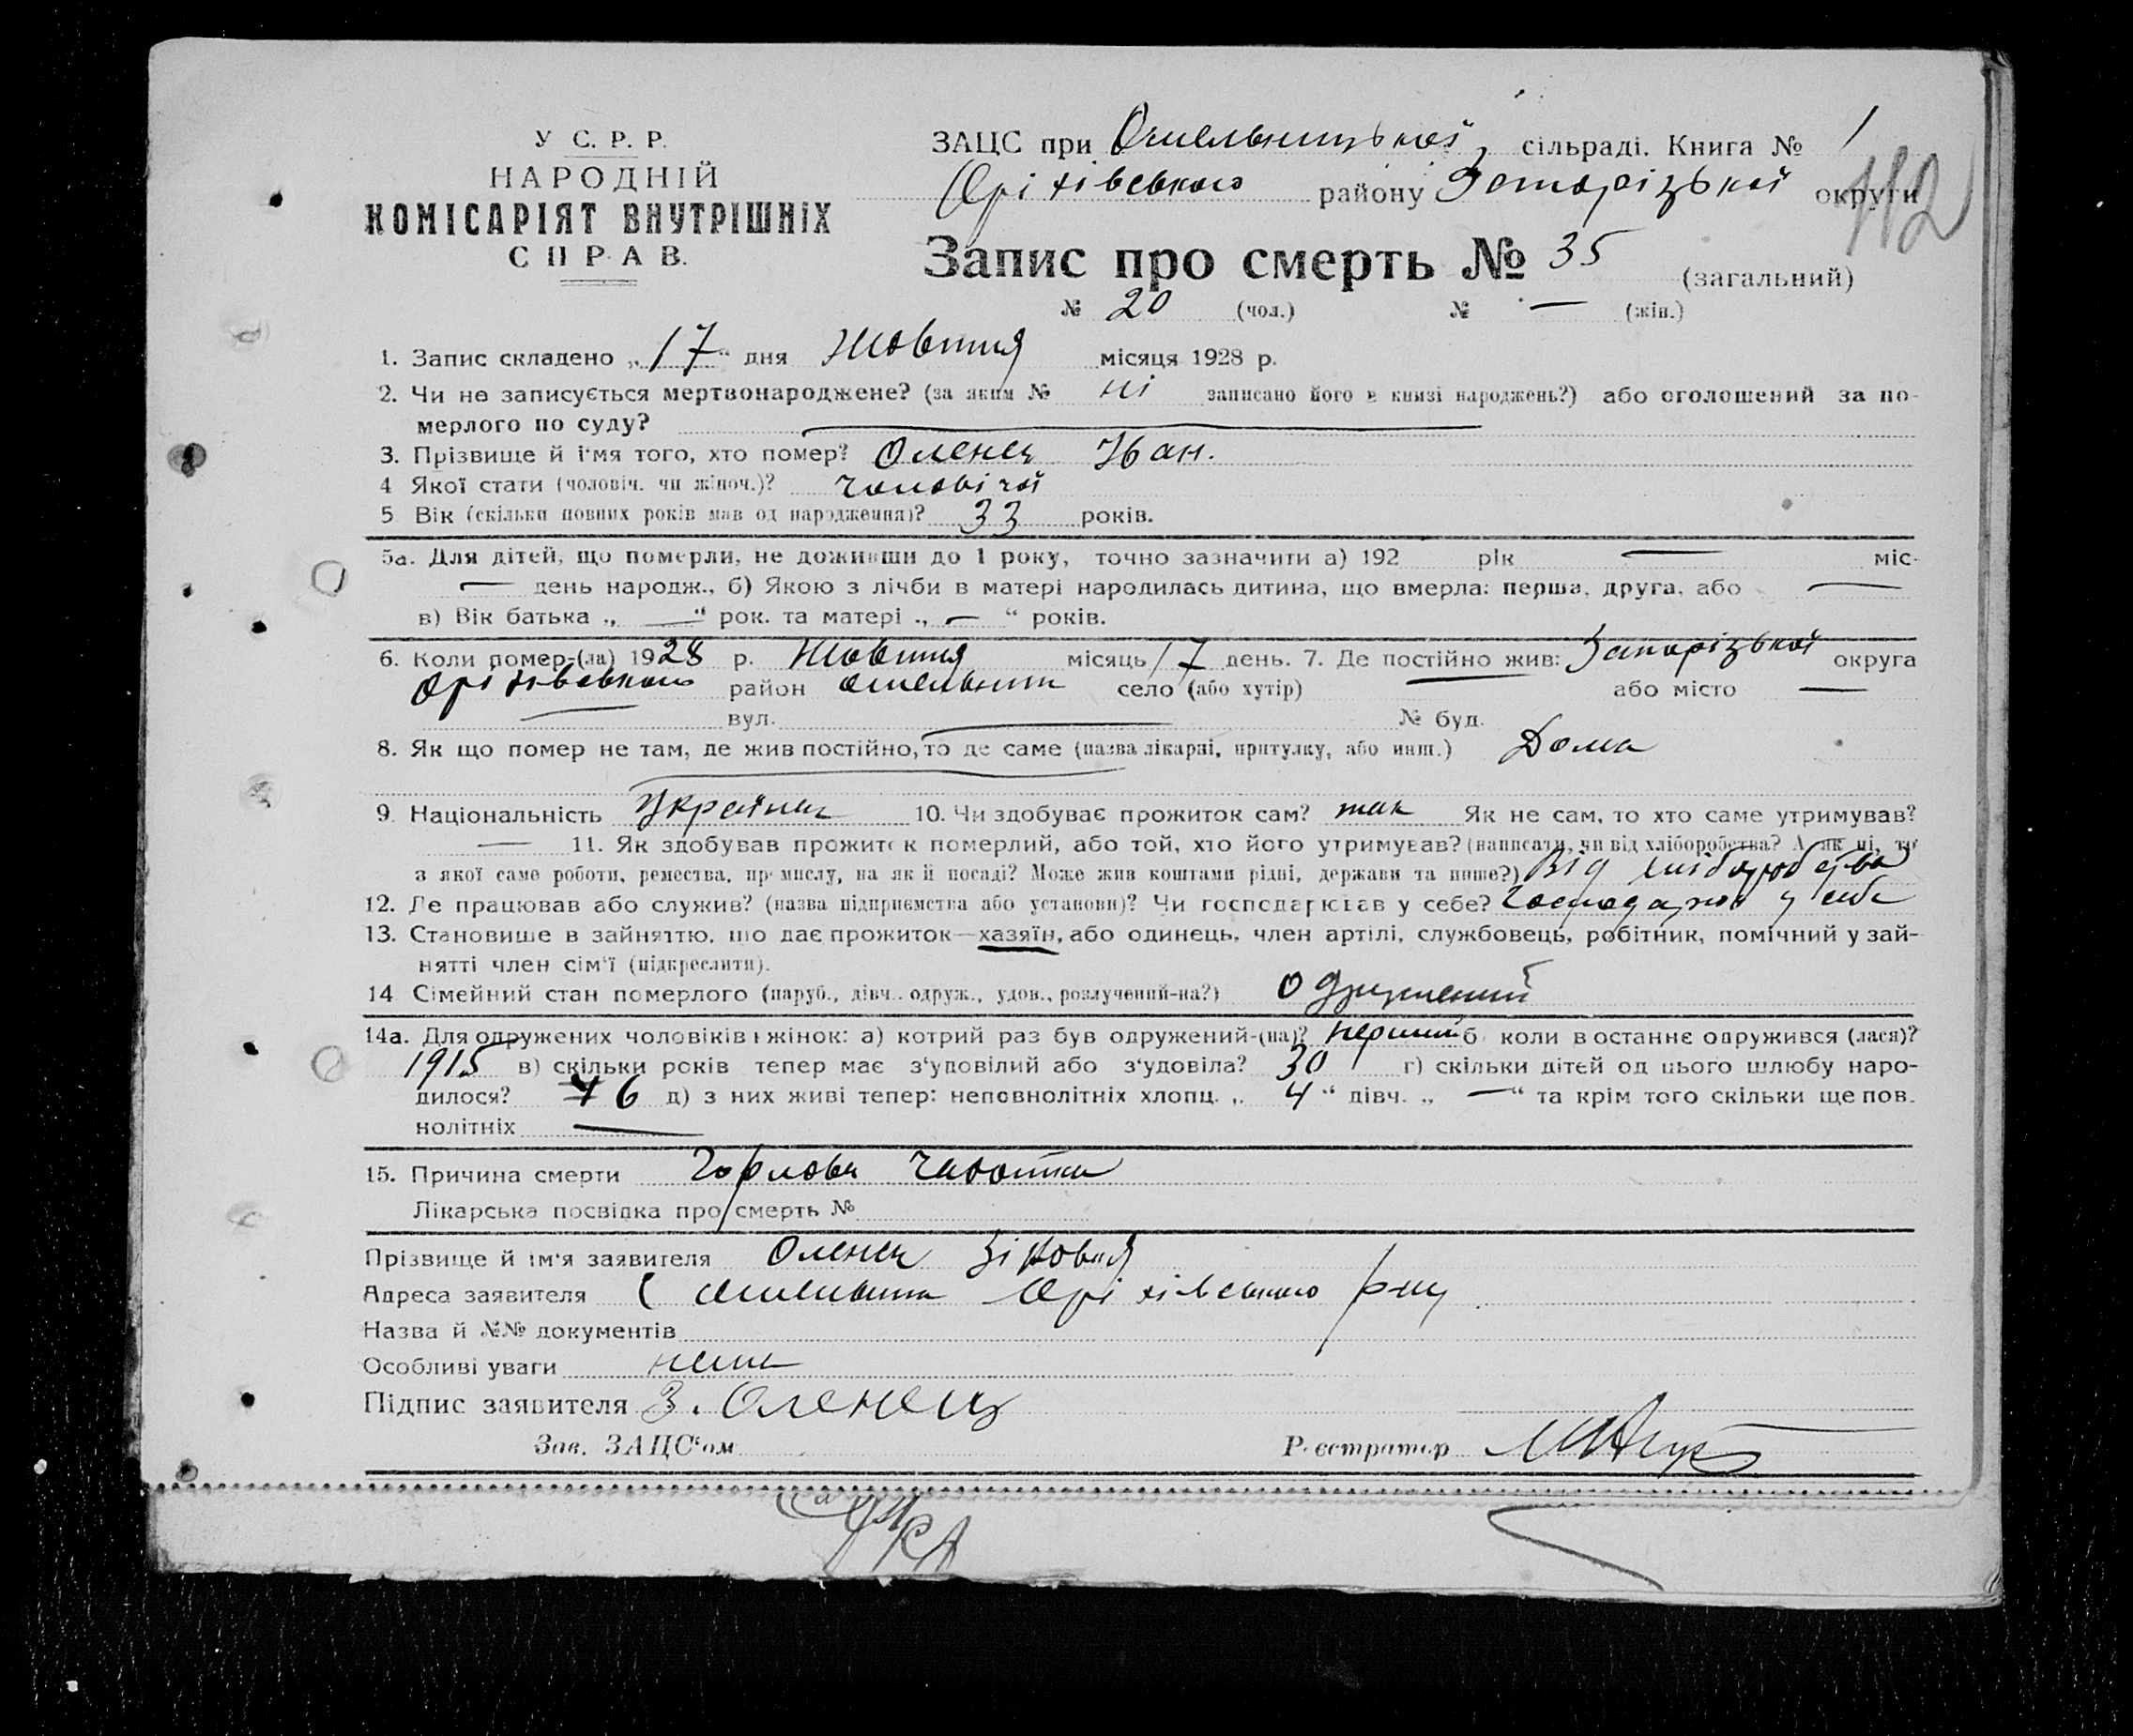 У С. Р. Р.
НАРОДНІЙ
КОМІСАРІЯТ ВНУТРІШНІХ
СПРАВ.
ЗАЦС при Омельницької сільраді. Книга № 1
Оріхівського району Запорізької округи
112
Запис про смерть № 35 (загальний)
№ 20 (чол.) № — (жін.)
1. Запис складено „17“ дня Жовтня місяця 1928 р.
2. Чи не записується мертвонароджене? (за яким № ні записано його в книзі народжень?) або оголошений за по-
мерлого по суду? —
3. Прізвище й ім'я того, хто помер? Оленец Іван.
4 Якої статі (чоловіч. чи жіноч.)? чоловічої
5 Вік (скільки повних років мав од народження)? 33 років.
5а. Для дітей, що померли, не доживши до 1 року, точно зазначити а) 192 рік — міс-
— день народж., б) Якою з лічби в матері народилась дитина, що вмерла: перша, друга, або —
в) Вік батька „ — “ рок. та матері „ — “ років.
6. Коли помер-(ла) 1928 р. Жовтня місяць 17 день. 7. Де постійно жив: Запорізької округа
Оріхівського район Омельник село (або хутір) — або місто —
— вул. — № буд.
8. Як що помер не там, де жив постійно, то де саме (назва лікарні, притулку, або инш.) Дома
9. Національність Українец 10. Чи здобуває прожиток сам? так Як не сам, то хто саме утримував?
— 11. Як здобував прожиток померлий, або той, хто його утримував? (написати, чи від хліборобства? А як ні, то
з якої саме роботи, ремества, промислу, на якій посаді? Може жив коштами рідні, держави та инше?) Від хліборобства
12. Де працював або служив? (назва підприємства або установи)? Чи господарював у себе? Господарюв у себе
13. Становище в зайняттю, що дає прожиток—хазяїн, або одинець, член артілі, службовець, робітник, помічний у зай-
нятті член сім'ї (підкреслити).
14 Сімейний стан померлого (паруб., дівч., одруж., удов., розлучений-на?) Одружений
14а. Для одружених чоловіків і жінок: а) котрий раз був одружений-(на)? перший б. коли востаннє одружився (лася)?
1915 в) скільки років тепер має з'уповілий або з'удовіла? 30 г) скільки дітей од цього шлюбу наро-
дилося? 6 д) з них живі тепер: неповнолітніх хлопц. „ 4 “ дівч. „ — “ та крім того скільки ще пов.
нолітніх —
15. Причина смерти Горлова чахотка
Лікарська посвідка про смерть №
Прізвище й ім'я заявителя Оленец Зіновія
Адреса заявителя С Омельник Оріхівського р-ну
Назва й №№ документів
Особливі уваги нема
Підпис заявителя З. Оленец
Зав. ЗАЦС'ом Реєстратор